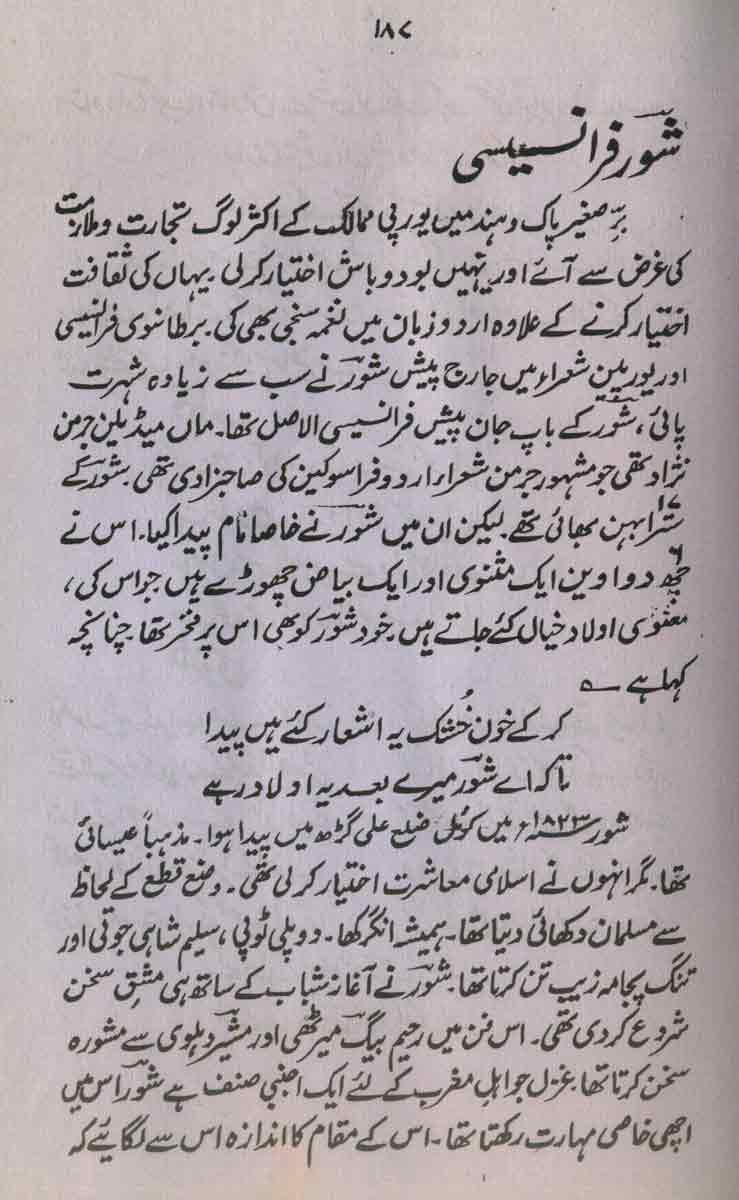 ۱۸۷
شور فرانسیسی
برِّ صغیر پاک و ہند میں یورپی ممالک کے اکثر لوگ تجارت و ملازمت
کی غرض سے آئے اور یہیں بود و باش اختیار کر لی یہاں کی ثقافت
اختیار کرنے کے علاوہ اردو زبان میں نغمہ سنجی بھی کی۔ برطانوی فرانسیسی
اور یورپین شعراء میں جارج پیش شورؔ نے سب سے زیادہ شہرت
پائی، شورؔ کے باپ جان پیش فرانسیسی الاصل تھا۔ ماں میڈیلین جرمن
نژاد تھی جو مشہور جرمن شعراء اردو فراسوکین کی صاحبزادی تھی۔ شورؔ کے
سترا ۱۷ بہن بھائی تھے۔ لیکن ان میں شورؔ نے خاصا نام پیدا کیا۔ اس نے
چھ ۶ دواوین ایک مثنوی اور ایک بیاض چھوڑے ہیں جو اس کی،
معنوی اولاد خیال کئے جاتے ہیں۔ خود شورؔ کو بھی اس پر فخر تھا چنانچہ
کہا ہے ؎
کر کے خون خُشک یہ اشعار کئے ہیں پیدا
تا کہ اے شورؔ میرے بعد یہ اولاد رہے
شور ۱۸۲۳ء میں کوئل ضلع علی گڑھ میں پیدا ہوا۔ مذہباً عیسائی
تھا۔ مگر انہوں نے اسلامی معاشرت اختیار کر لی تھی۔ وضع قطع کے لحاظ
سے مسلمان دکھائی دیتا تھا۔ ہمیشہ انگرکھا۔ دوپلی ٹوپی، سلیم شاہی جوتی اور
تنگ پجامہ زیب تن کرتا تھا۔ شورؔ نے آغاز شباب کے ساتھ ہی مشقِ سخن
شروع کر دی تھی۔ اس فن میں رحیم بیگ میرٹھی اور مشیرؔ دہلوی سے مشورہ
سخن کرتا تھا۔ غزل جو اہلِ مغرب کے لئے ایک اجنبی صنف ہے شورؔ اس میں
اچھی خاصی مہارت رکھتا تھا۔ اس کے مقام کا اندازہ اس سے لگایئے کہ